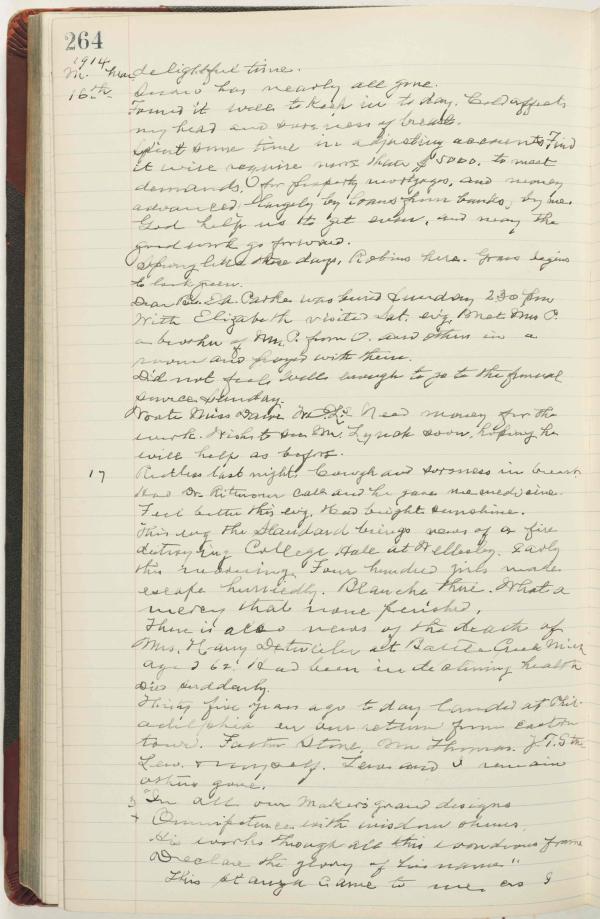 264
1914
M. Mar delightful time.
16th Snow has nearly all gone.
Found it well to keep in to day. Cold affects
my head and soreness of breast.
Spent some time in adjusting accounts. Find
it will require more than $5000. to meet
demands, for property mortgages, and money
advanced, largely by loans from banks, by me.
God help us to get even, and may the
good work go forward.
Spring like these days, Robins here. Grass begins
to look green.
Dear Bro. was buried Sunday 2 30 pm
With Elizabeth visited Sat. evg. Met Mrs P.
a brother of Mr. P. from O. and others in a
room and prayed with them.
Did not feel well enough to go to the funeral
service Sunday.
Wrote Miss Need money for the
work. Wish to see Mr. Lynch soon, hoping he
will help as before.
17 Restless last night. Cough and soreness in breast.
Had Dr. Ritenour call and he gave me medicine.
Feel better this evg. Had bright sunshine.
This evg the Standard brings news of a fire
destroying College Hall at Wellesley. Early
this morning. Four hundred girls made
escape hurriedly. Blanche there. What a
mercy that none perished.
There is also news of the death of
Mrs. Harry Detwiler at Battle Creek Mich
aged 62. Had been in declining health
Died suddenly.
Thirty five years ago to day landed at Phil-
adelphia on our return from eastern
tour. Pastor Stone, Mr Thomas. J. T. Stone
Lew. & myself. Lew and I remain
others gone.
"In all our Maker's grand designs
Omnipotence with wisdom shines,
His works through all this wondrous frame
Declare the glory of his name"
This stanza came to me, as I